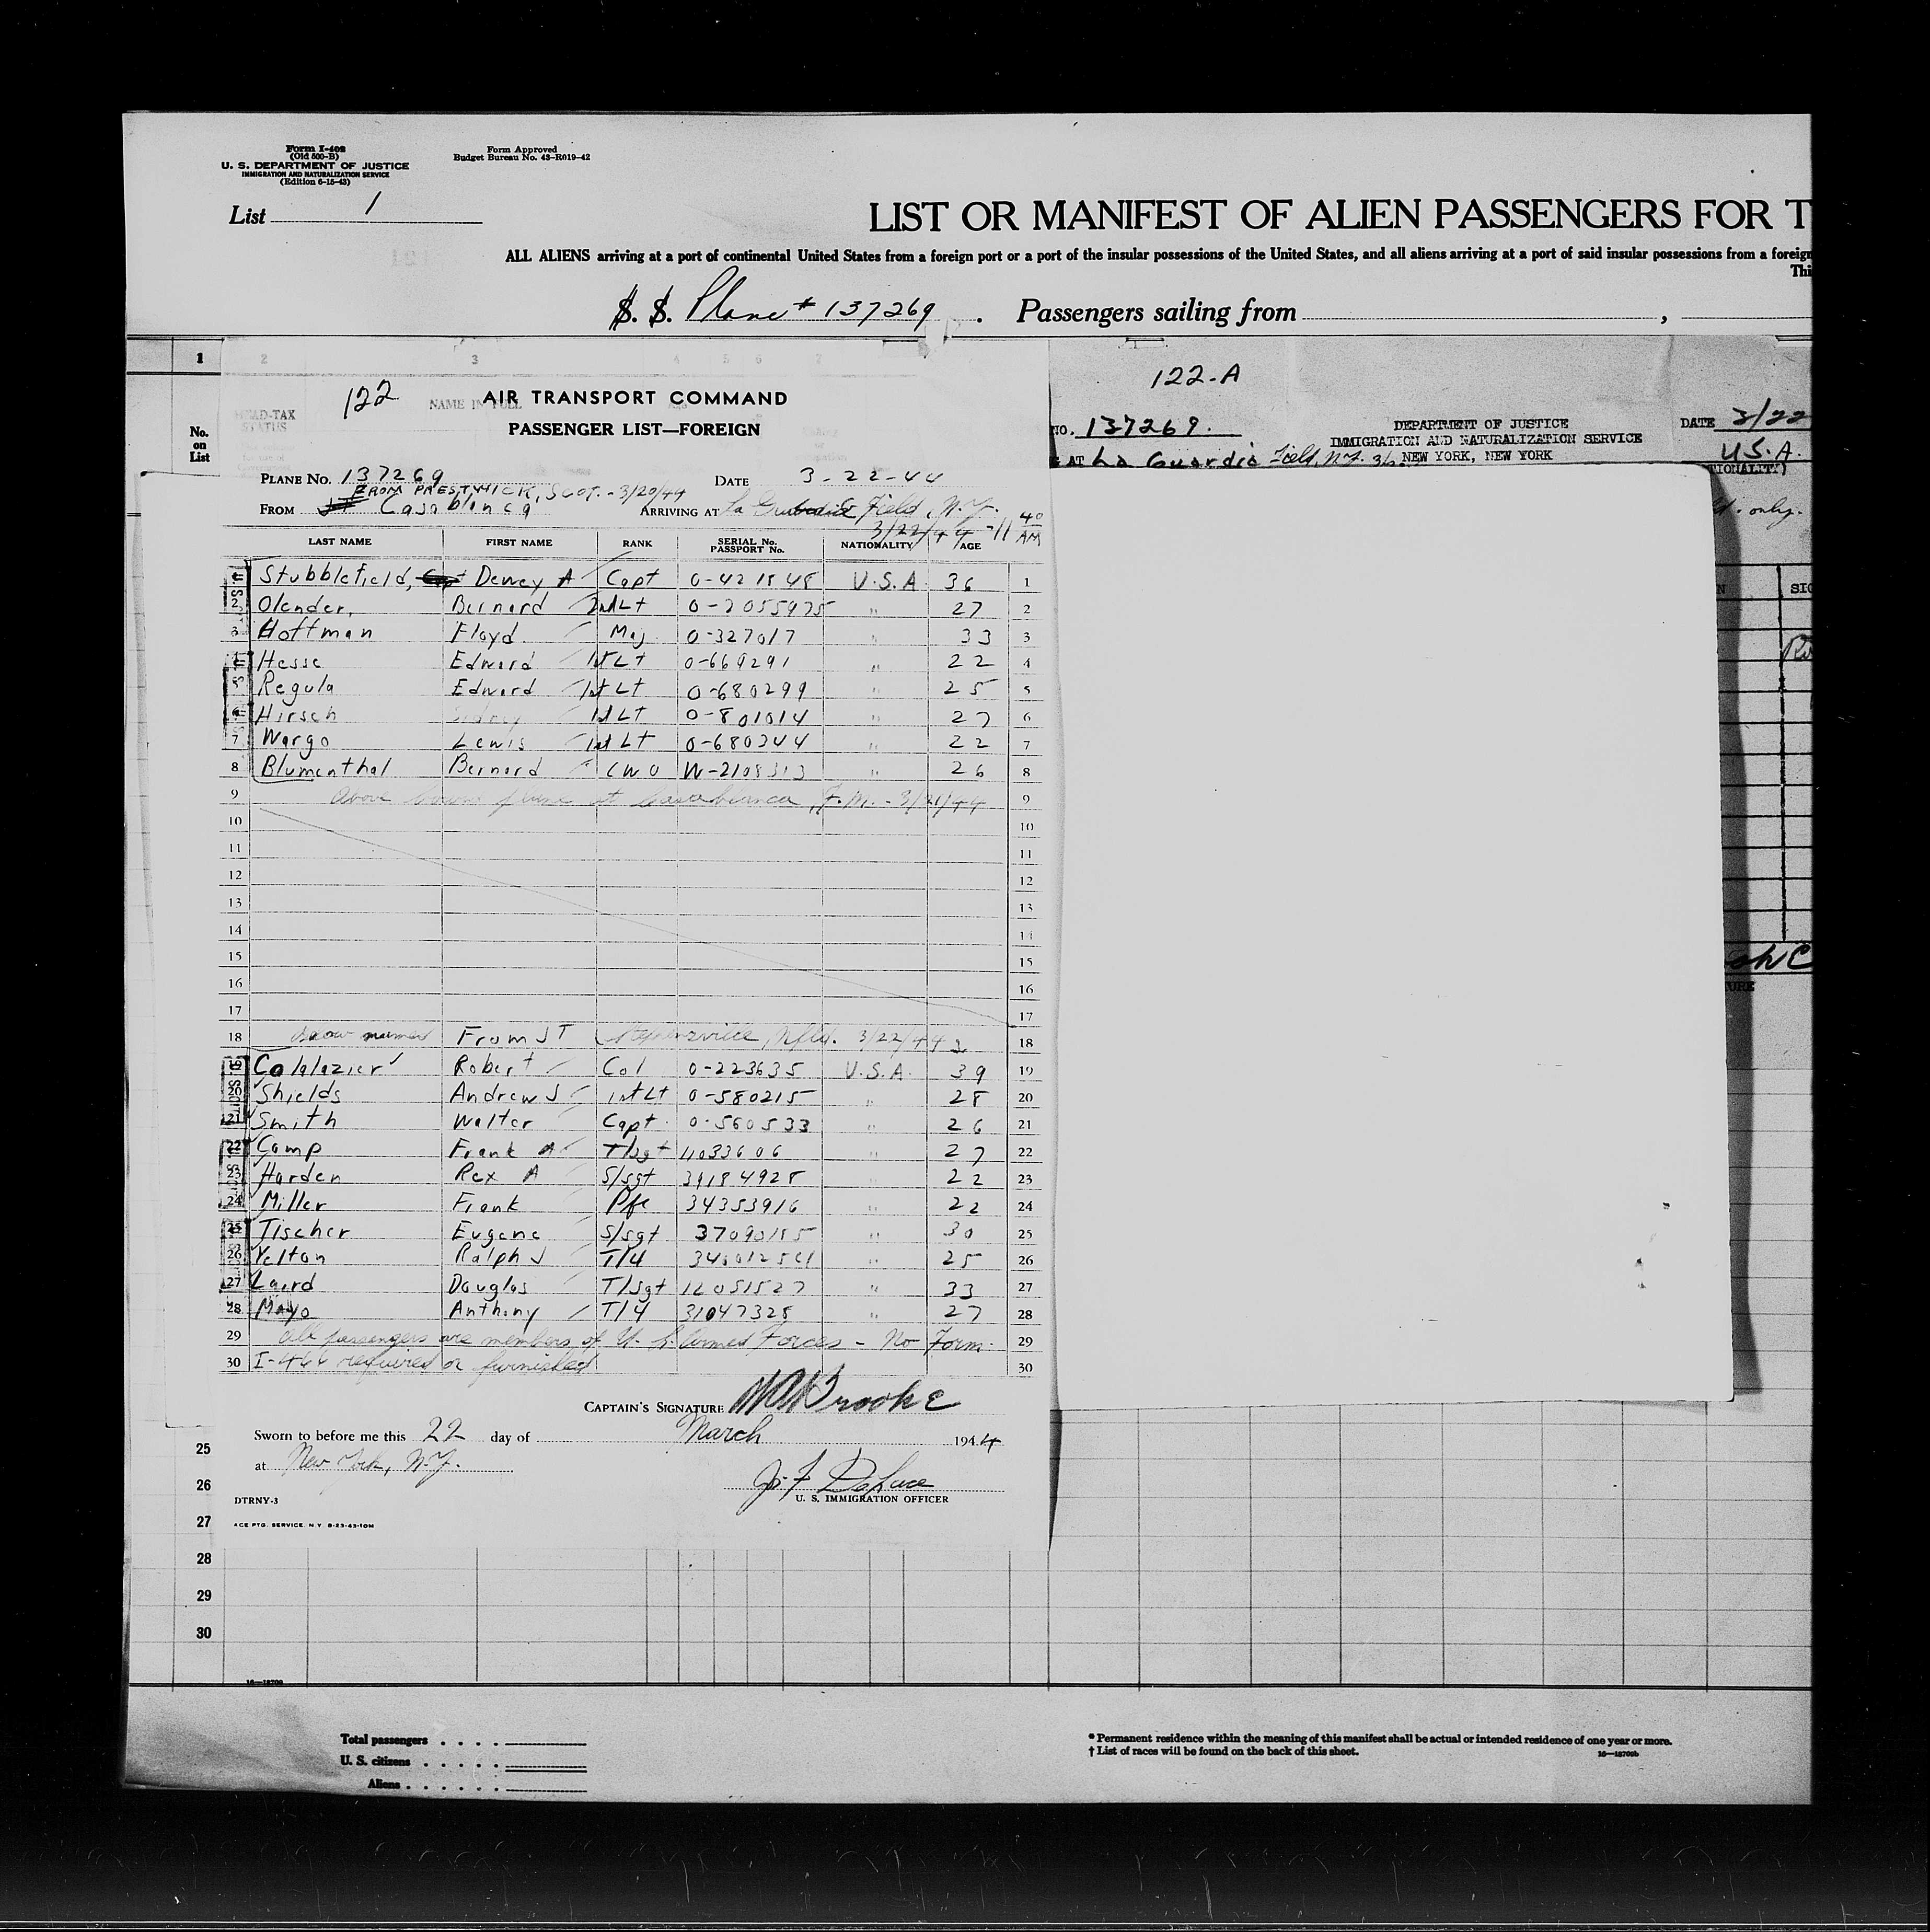 Form I-402
(Old 500-B)
U. S. DEPARTMENT OF JUSTICE
IMMIGRATION AND NATURALIZATION SERVICE
(Edition 6-15-43)
Form Approved
Budget Bureau No. 43-R019-42
List 1
LIST OR MANIFEST OF ALIEN PASSENGERS FOR T
ALL ALIENS arriving at a port of continental United States from a foreign port or a port of the insular possessions of the United States, and all aliens arriving at a port of said insular possessions from a foreign
Thi
S. S. Plane # 137269 . Passengers sailing from ,
1 2 3 4 5 6 7
No.
on
List
HEAD-TAX
STATUS
NAME IN FULL
122
AIR TRANSPORT COMMAND
PASSENGER LIST—FOREIGN
PLANE NO. 137269 DATE 3-22-44
FROM PRESTWICK, SCOT. - 3/20/44
FROM Casablanca ARRIVING AT La Guardia Field, N.Y.
3/22/44 - 11 40 AM
LAST NAME FIRST NAME RANK SERIAL No. PASSPORT No. NATIONALITY AGE
1 Stubblefield, Dewey A Capt 0-421848 U.S.A. 36 1
2 Olender, Bernard 2nd Lt 0-2055975 " 27 2
3 Hoffman Floyd Maj 0-327017 " 33 3
4 Hesse Edward 1st Lt 0-669291 " 22 4
5 Regula Edward 1st Lt 0-680299 " 25 5
6 Hirsch Sidney 1st Lt 0-801014 " 27 6
7 Wargo Lewis 1st Lt 0-680344 " 22 7
8 Blumenthal Bernard CWO W-2108313 " 26 8
9 Above plane at Casablanca, F.M. - 3/21/44 9
10 10
11 11
12 12
13 13
14 14
15 15
16 16
17 17
18 Below named From ST Stephenville, Nfld. 3/22/44 18
19 Colglazier Robert Col 0-223635 U.S.A. 39 19
20 Shields Andrew J 1st Lt 0-580215 " 28 20
21 Smith Walter Capt. 0-560533 " 26 21
22 Camp Frank A T/Sgt 11033606 " 27 22
23 Harden Rex A S/sgt 39184928 " 22 23
24 Miller Frank Pfc 34353916 " 22 24
25 Tischer Eugene S/sgt 37090155 " 30 25
26 Yelton Ralph J T/4 " 25 26
27 Laird Douglas T/Sgt 12051527 " 33 27
28 Mayo Anthony T/4 31047328 " 27 28
29 All passengers are members of U. S. Armed Forces - No Form 29
30 I-466 required or furnished 30
CAPTAIN'S SIGNATURE Brooke
Sworn to before me this 22 day of March 1944
at New York, N.Y.
U. S. IMMIGRATION OFFICER
DTRNY-3
ACE PTG. SERVICE. N.Y. 8-23-43-10M
122-A
NO. 137269. DEPARTMENT OF JUSTICE DATE 3/22
IMMIGRATION AND NATURALIZATION SERVICE
AT La Guardia Field, N.Y. NEW YORK, NEW YORK U.S.A.
only.
25
26
27
28
29
30
Total passengers
U. S. citizens
Aliens
* Permanent residence within the meaning of this manifest shall be actual or intended residence of one year or more.
† List of races will be found on the back of this sheet.